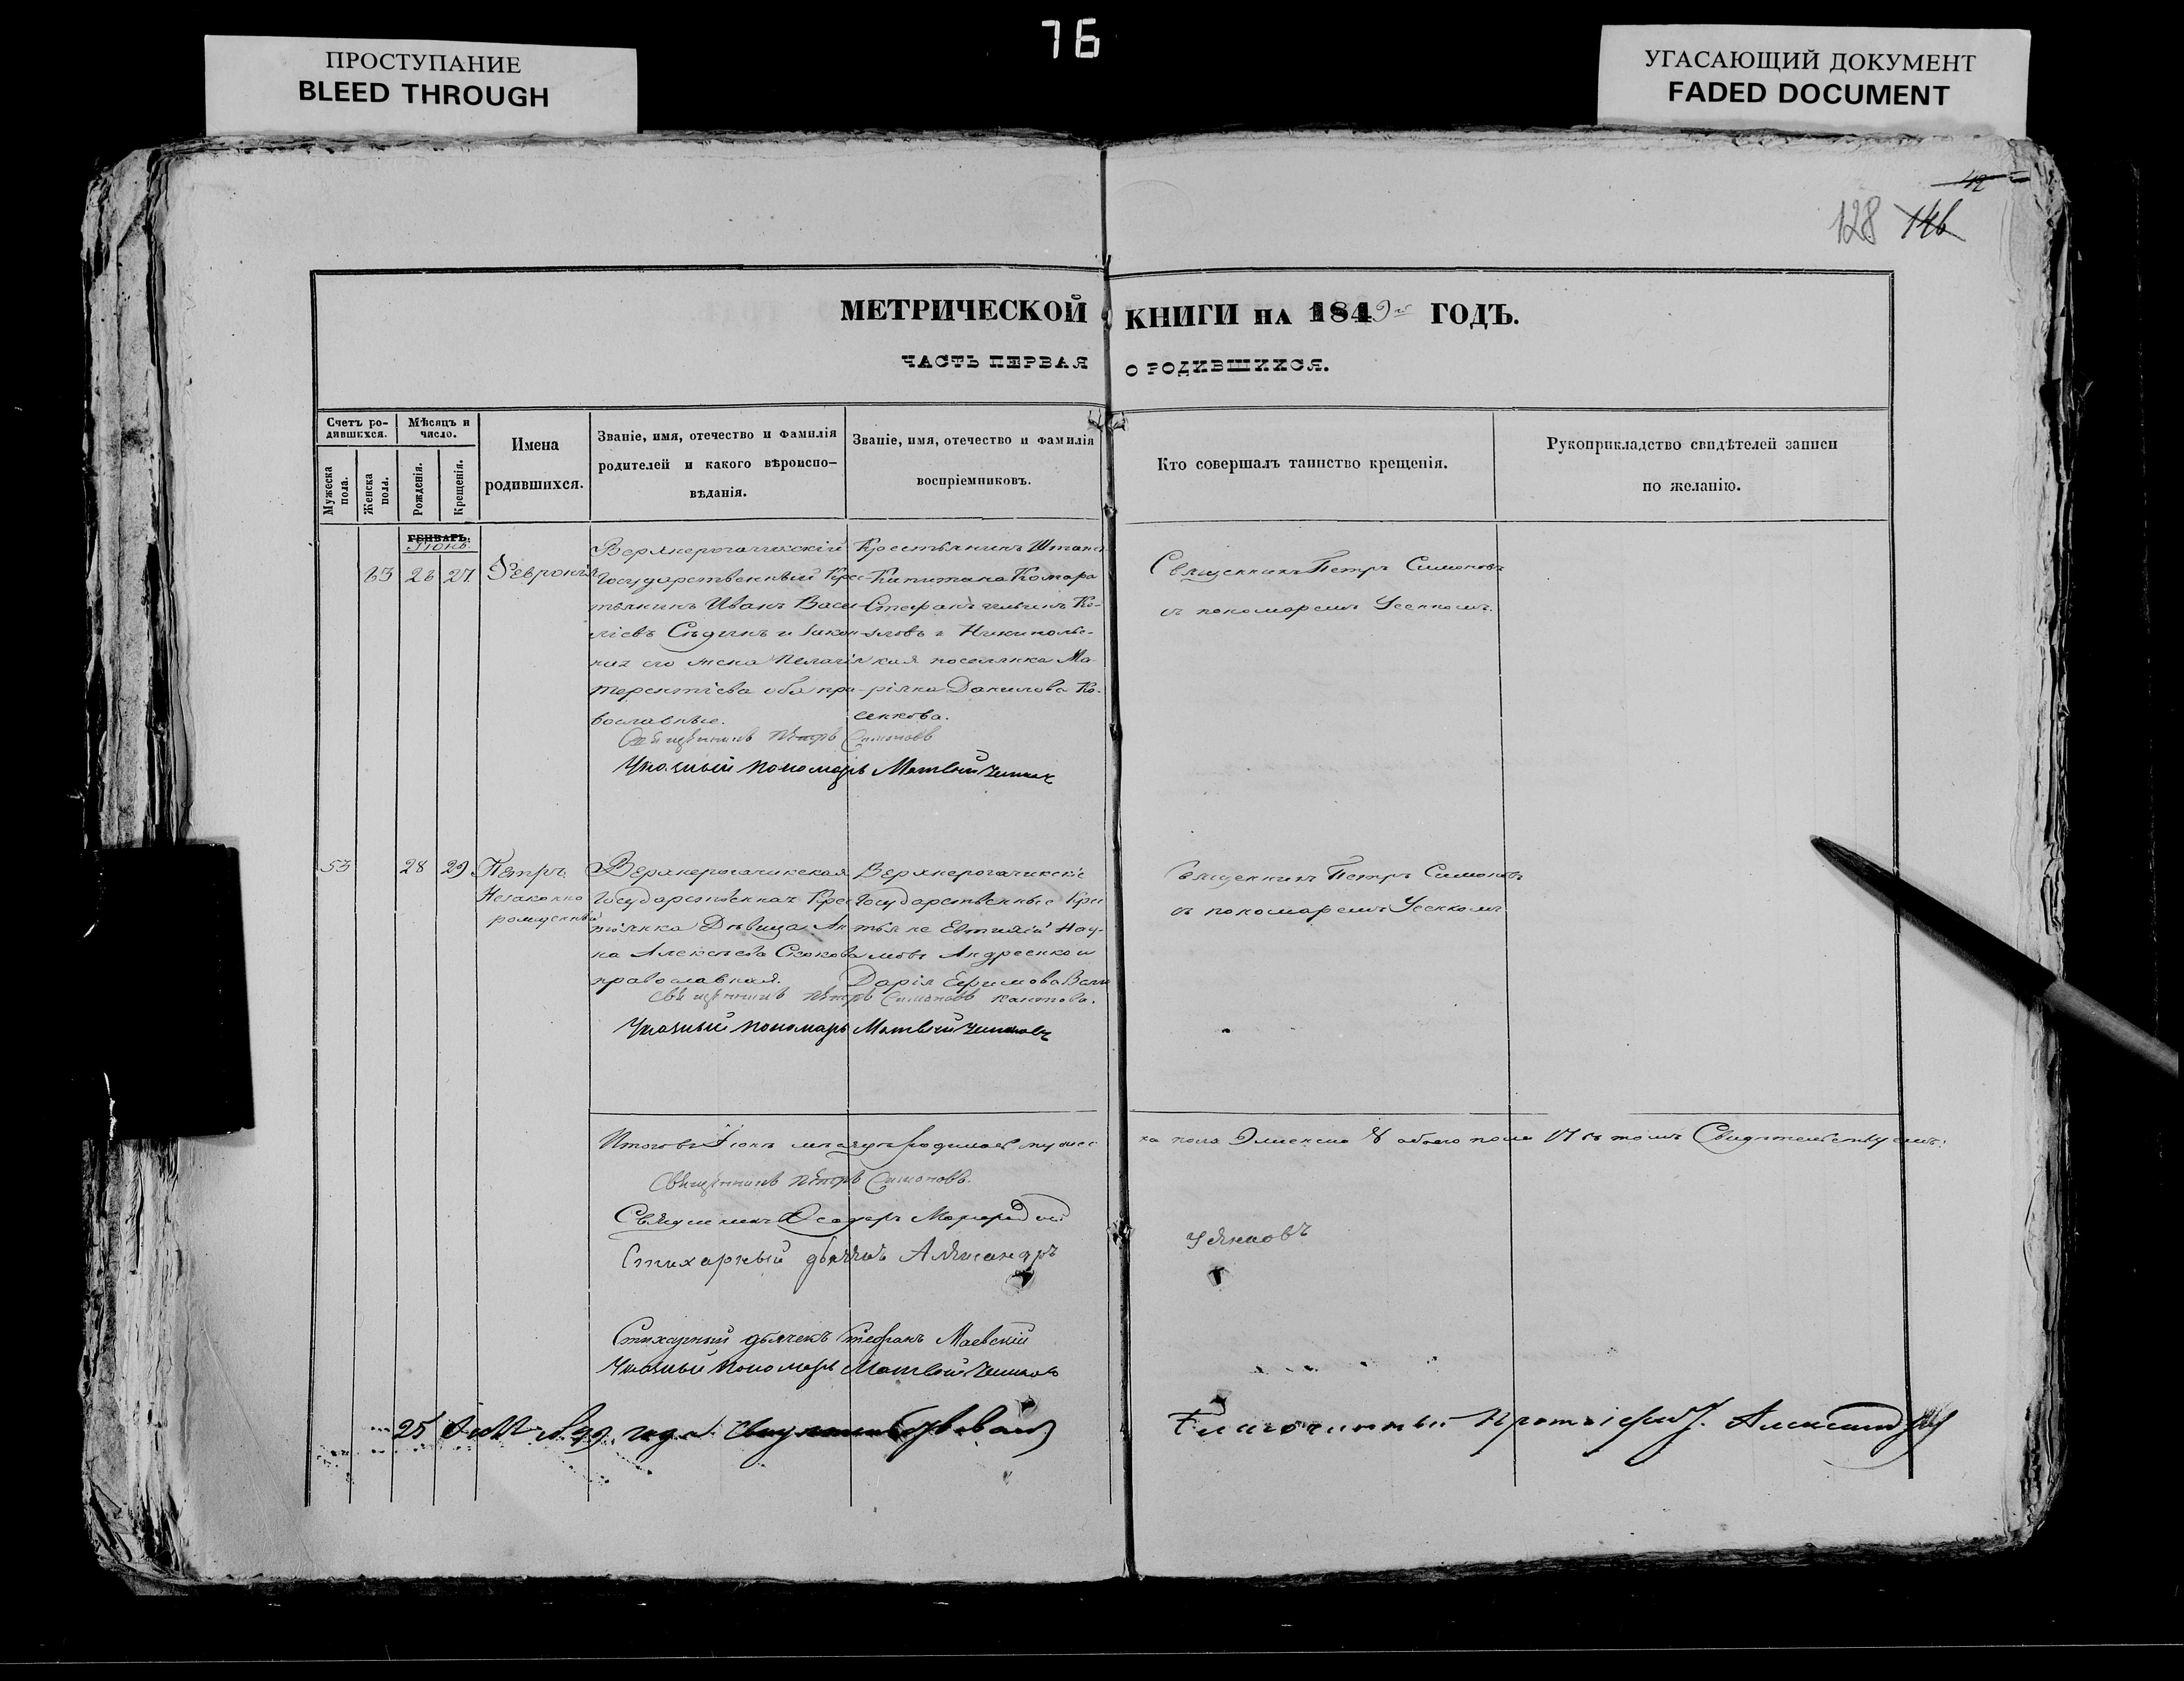 76
ПРОСТУПАНИЕ
BLEED THROUGH
УГАСАЮЩИЙ ДОКУМЕНТ
FADED DOCUMENT
42
128 146
МЕТРИЧЕСКОЙ КНИГИ НА 1849 ГОДЪ.
ЧАСТЬ ПЕРВАЯ О РОДИВШИХСЯ.
Счетъ ро-
дившихся.
Мужеска пола.
Женска пола.
Мѣсяцъ и
число.
Рожденія.
Крещенія.
Имена
родившихся.
Званіе, имя, отечество и фамилія
родителей и какого вѣроиспо-
вѣданія.
Званіе, имя, отечество и фамилія
воспріемниковъ.
Кто совершалъ таинство крещенія.
Рукоприкладство свидѣтелей записи
по желанію.
ГЕНВАРЬ.
Іюнь.
63 26 27 Февронія
Верхнерогачикскій
Государственный Крес-
тьянинъ Иванъ Васи-
ліевъ Сѣдинъ и закон-
ная его жена Пелагія
Терентіева оба пра-
вославные.
Крестьянинъ Штапсъ
Капитана Комара
Стефанъ
и Никиполь-
ская поселянка Ма-
рія Данилова Ко-
сенкова.
Священникъ Петръ Симоновъ
съ пономаремъ Усенкомъ.
Священникъ Петръ Симоновъ
Указный пономарь Матвѣй
53 28 29 Петръ
Незаконно
рожденный
Верхнерогачикская
Государственная Крес
тьянка Дѣвица Ан
на Алексѣева
православная.
Верхнерогачикскіе
Государственные Крес
тьяне Евтихій Нау-
мовъ Андреенко и
Дарія Ефимова
Священникъ Петръ Симоновъ
съ пономаремъ Усенкомъ
Священникъ Петръ Симоновъ
Указный пономарь Матвѣй
Итого въ Іюнѣ мѣсяцѣ родилось мужес
ка пола 9 женска 8 обоего пола 17 въ томъ Свидѣтельствуемъ:
Священникъ Петръ Симоновъ.
Священникъ Ѳеодоръ
Стихарный дьячекъ Александръ
Стихарный дьячекъ Стефанъ Маевскій
Указный пономарь Матвѣй
25 1849 года свидѣтельствовалъ
Благочинный Протоіерей